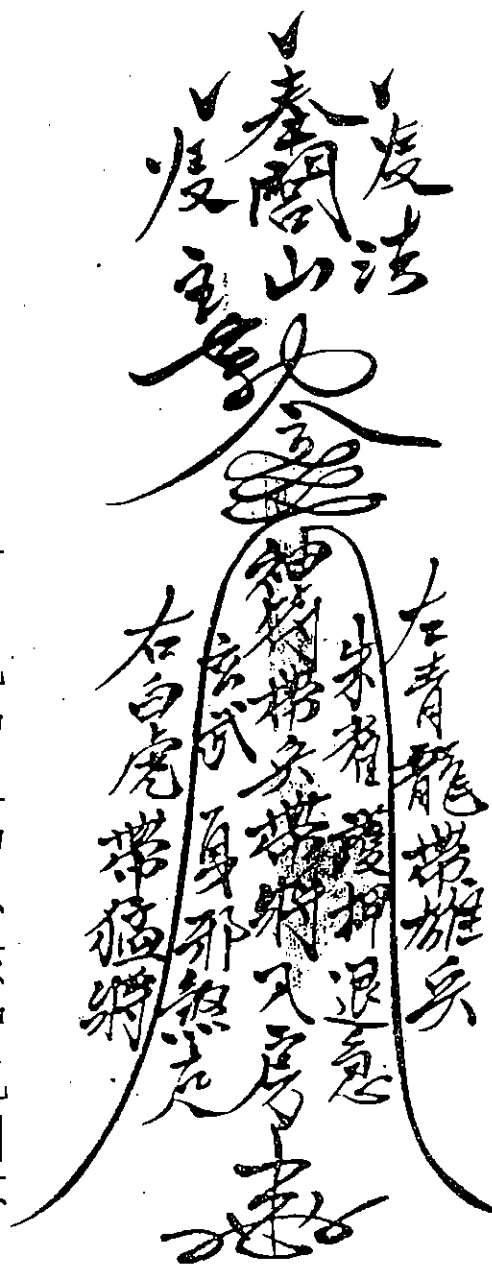 奉閭山
法
主
敕
左青龍帶雄兵
朱雀護押退急
神符帶兵帶將入房
玄武身邪煞走
右白虎帶猛將